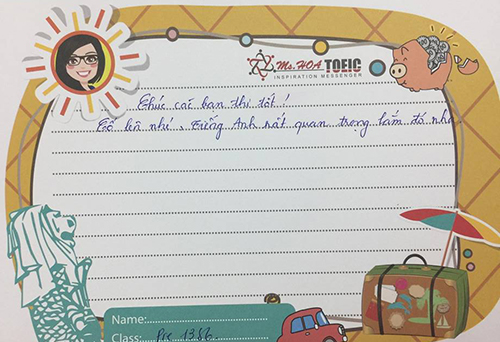 Ms. HOA TOEIC
INSPIRATION MESSENGER
Chúc các bạn thi tốt !
Cố lên nhé, Tiếng Anh rất quan trọng lắm đó nha
Name:
Class: Pre 1356